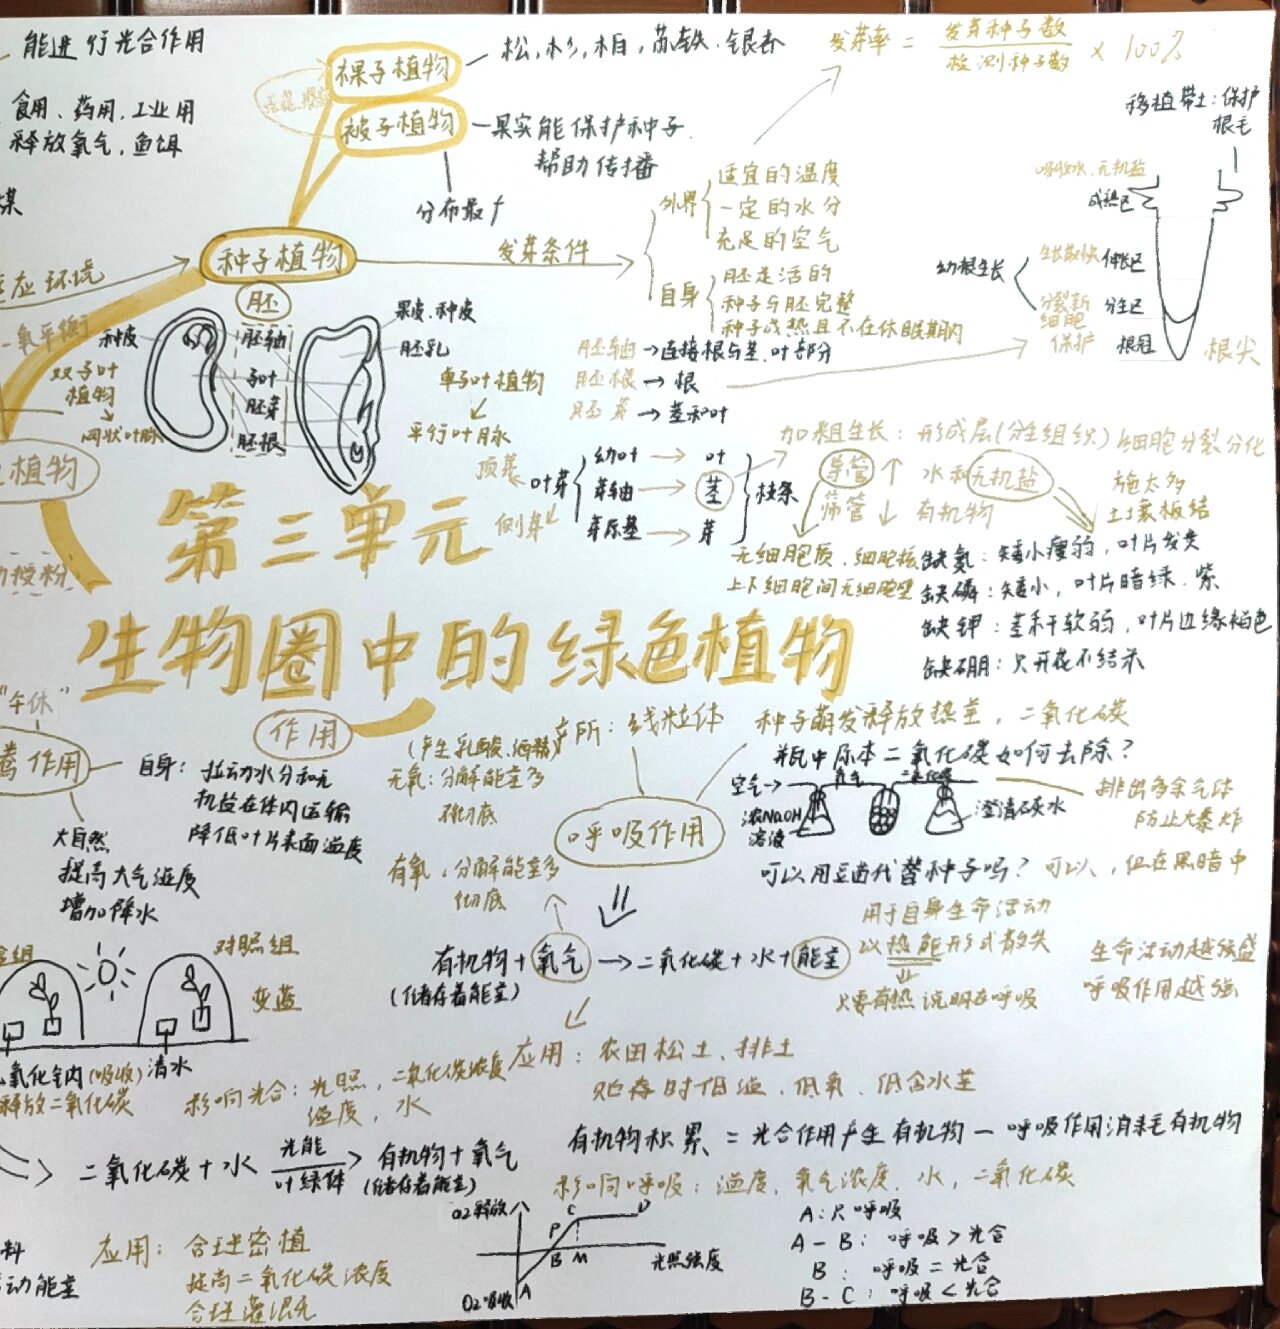 能进行光合作用
食用、药用、工业用
释放氧气、鱼饵
煤
裸子植物
松，杉，柏，苏铁、银杏
被子植物
果实能保护种子
帮助传播
分布最广
发芽率 = 发芽种子数 / 检测种子数 × 100%
移植带土：保护
根毛
种子植物
适应环境
发芽条件
外界
适宜的温度
一定的水分
充足的空气
自身
胚是活的
种子与胚完整
种子成熟且不在休眠期内
吸收水、无机盐
成熟区
幼根生长
生长最快 伸长区
分裂新
细胞
分生区
保护 根冠
根尖
胚
种皮
胚轴
子叶
胚芽
胚根
果皮、种皮
胚乳
双子叶
植物
网状叶脉
单子叶植物
平行叶脉
胚轴→连接根与茎、叶部分
胚根→根
胚芽→茎和叶
植物
顶芽
叶芽
侧芽
幼叶→叶
芽轴→茎
芽原基→芽
枝条
加粗生长：形成层(分生组织)细胞分裂分化
导管↑ 水和无机盐
筛管↓ 有机物
施太多
土壤板结
无细胞质、细胞核
上下细胞间无细胞壁
缺氮：矮小瘦弱，叶片发黄
缺磷：矮小，叶片暗绿、紫
缺钾：茎秆软弱，叶片边缘褐色
缺硼：只开花不结果
第三单元
生物圈中的绿色植物
授粉
"午休"
作用
腾作用
自身：拉动水分和无
机盐在体内运输
降低叶片表面温度
大自然
提高大气湿度
增加降水
(产生乳酸、酒精)
无氧：分解能量多
不彻底
有氧：分解能量多
彻底
场所：线粒体
呼吸作用
种子萌发释放热量，二氧化碳
瓶中原本二氧化碳如何去除？
空气→
浓NaOH
溶液
氧气
二氧化碳
澄清石灰水
排出多余气体
防止大爆炸
可以用豆苗代替种子吗？可以，但在黑暗中
有机物+氧气→二氧化碳+水+能量
(储存着能量)
用于自身生命活动
以热能形式散失
只要有热说明在呼吸
生命活动越强盛
呼吸作用越强
组
对照组
变蓝
氧化钠(吸收)
清水
释放二氧化碳
影响光合：光照，二氧化碳浓度
温度，水
应用：农田松土、排土
贮存时低温、低氧、低含水量
二氧化碳+水 光能 叶绿体 → 有机物+氧气
(储存着能量)
有机物积累 = 光合作用产生有机物 — 呼吸作用消耗有机物
影响呼吸：温度、氧气浓度、水，二氧化碳
料
动能量
应用：合理密植
提高二氧化碳浓度
合理灌溉
O2释放
O2吸收
光照强度
A
B
P
C
M
D
A：只呼吸
A - B：呼吸 > 光合
B：呼吸 = 光合
B - C：呼吸 < 光合